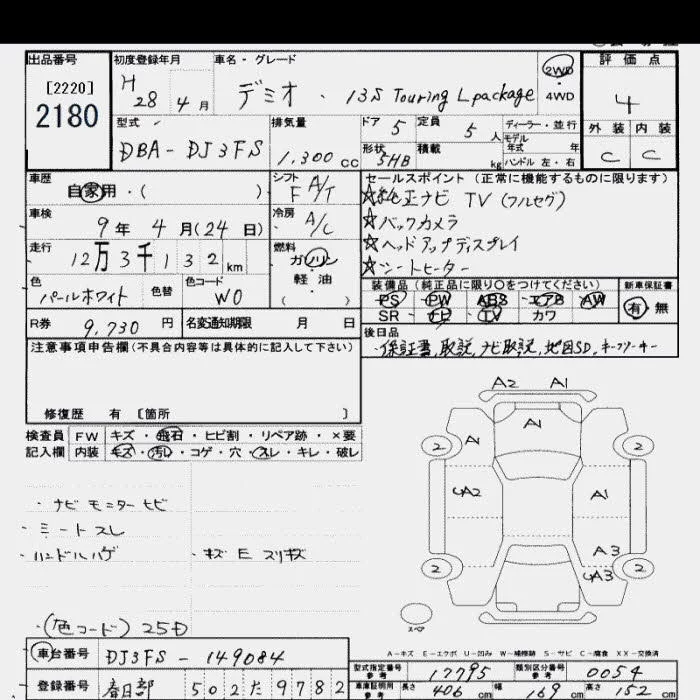 出品番号
[2220]
2180
初度登録年月
H 28年 4月
車名・グレード
デミオ ・ 13S Touring L package
2WD
4WD
評価点
4
外装 内装
C C
型式
DBA-DJ3FS
排気量
1,300 cc
ドア 5
定員 5 人
形状 5HB
積載 kg
ディーラー・並行
モデル年式 年
ハンドル 左・右
車歴
自家用・( )
シフト
F A/T
車検
9年 4月(24日)
冷房
A/C
走行
12万3千132km
燃料
ガソリン
軽油
( )
色
パールホワイト
色替
色コード
W0
R券 9,730 円
名変通知期限 月 日
セールスポイント (正常に機能するものに限ります)
☆純正ナビ TV (フルセグ)
☆バックカメラ
☆ヘッドアップディスプレイ
☆シートヒーター
装備品 (純正品に限り○をつけてください)
新車保証書
PS PW ABS エアB AW
SR ナビ TV カワ
有・無
後日品
・保証書,取説,ナビ取説,地図SD,キーフリーキー
注意事項申告欄(不具合内容等は具体的に記入して下さい)
修復歴 有 [箇所 ]
検査員 FW キズ・飛石・ヒビ割・リペア跡・×要
記入欄 内装 キズ・汚レ・コゲ・穴・スレ・キレ・破レ
・ナビモニターヒビ
・ミートスレ
・ハンドルハゲ ・キズ E スリキズ
・(色コード) 25D
A2 A1
A1
2 A 2
UA2 A1
A3
2 UA3 2
スペア
A-キズ E-エクボ U-凹み W-補修跡 S-サビ C-腐食 XX-交換済
車台番号 DJ3FS-149084
型式指定番号 参考 17795
類別区分番号 参考 0054
登録番号 春日部 502 た 9782
車庫証明用 参考 長さ 406 cm 幅 169 cm 高さ 152 cm